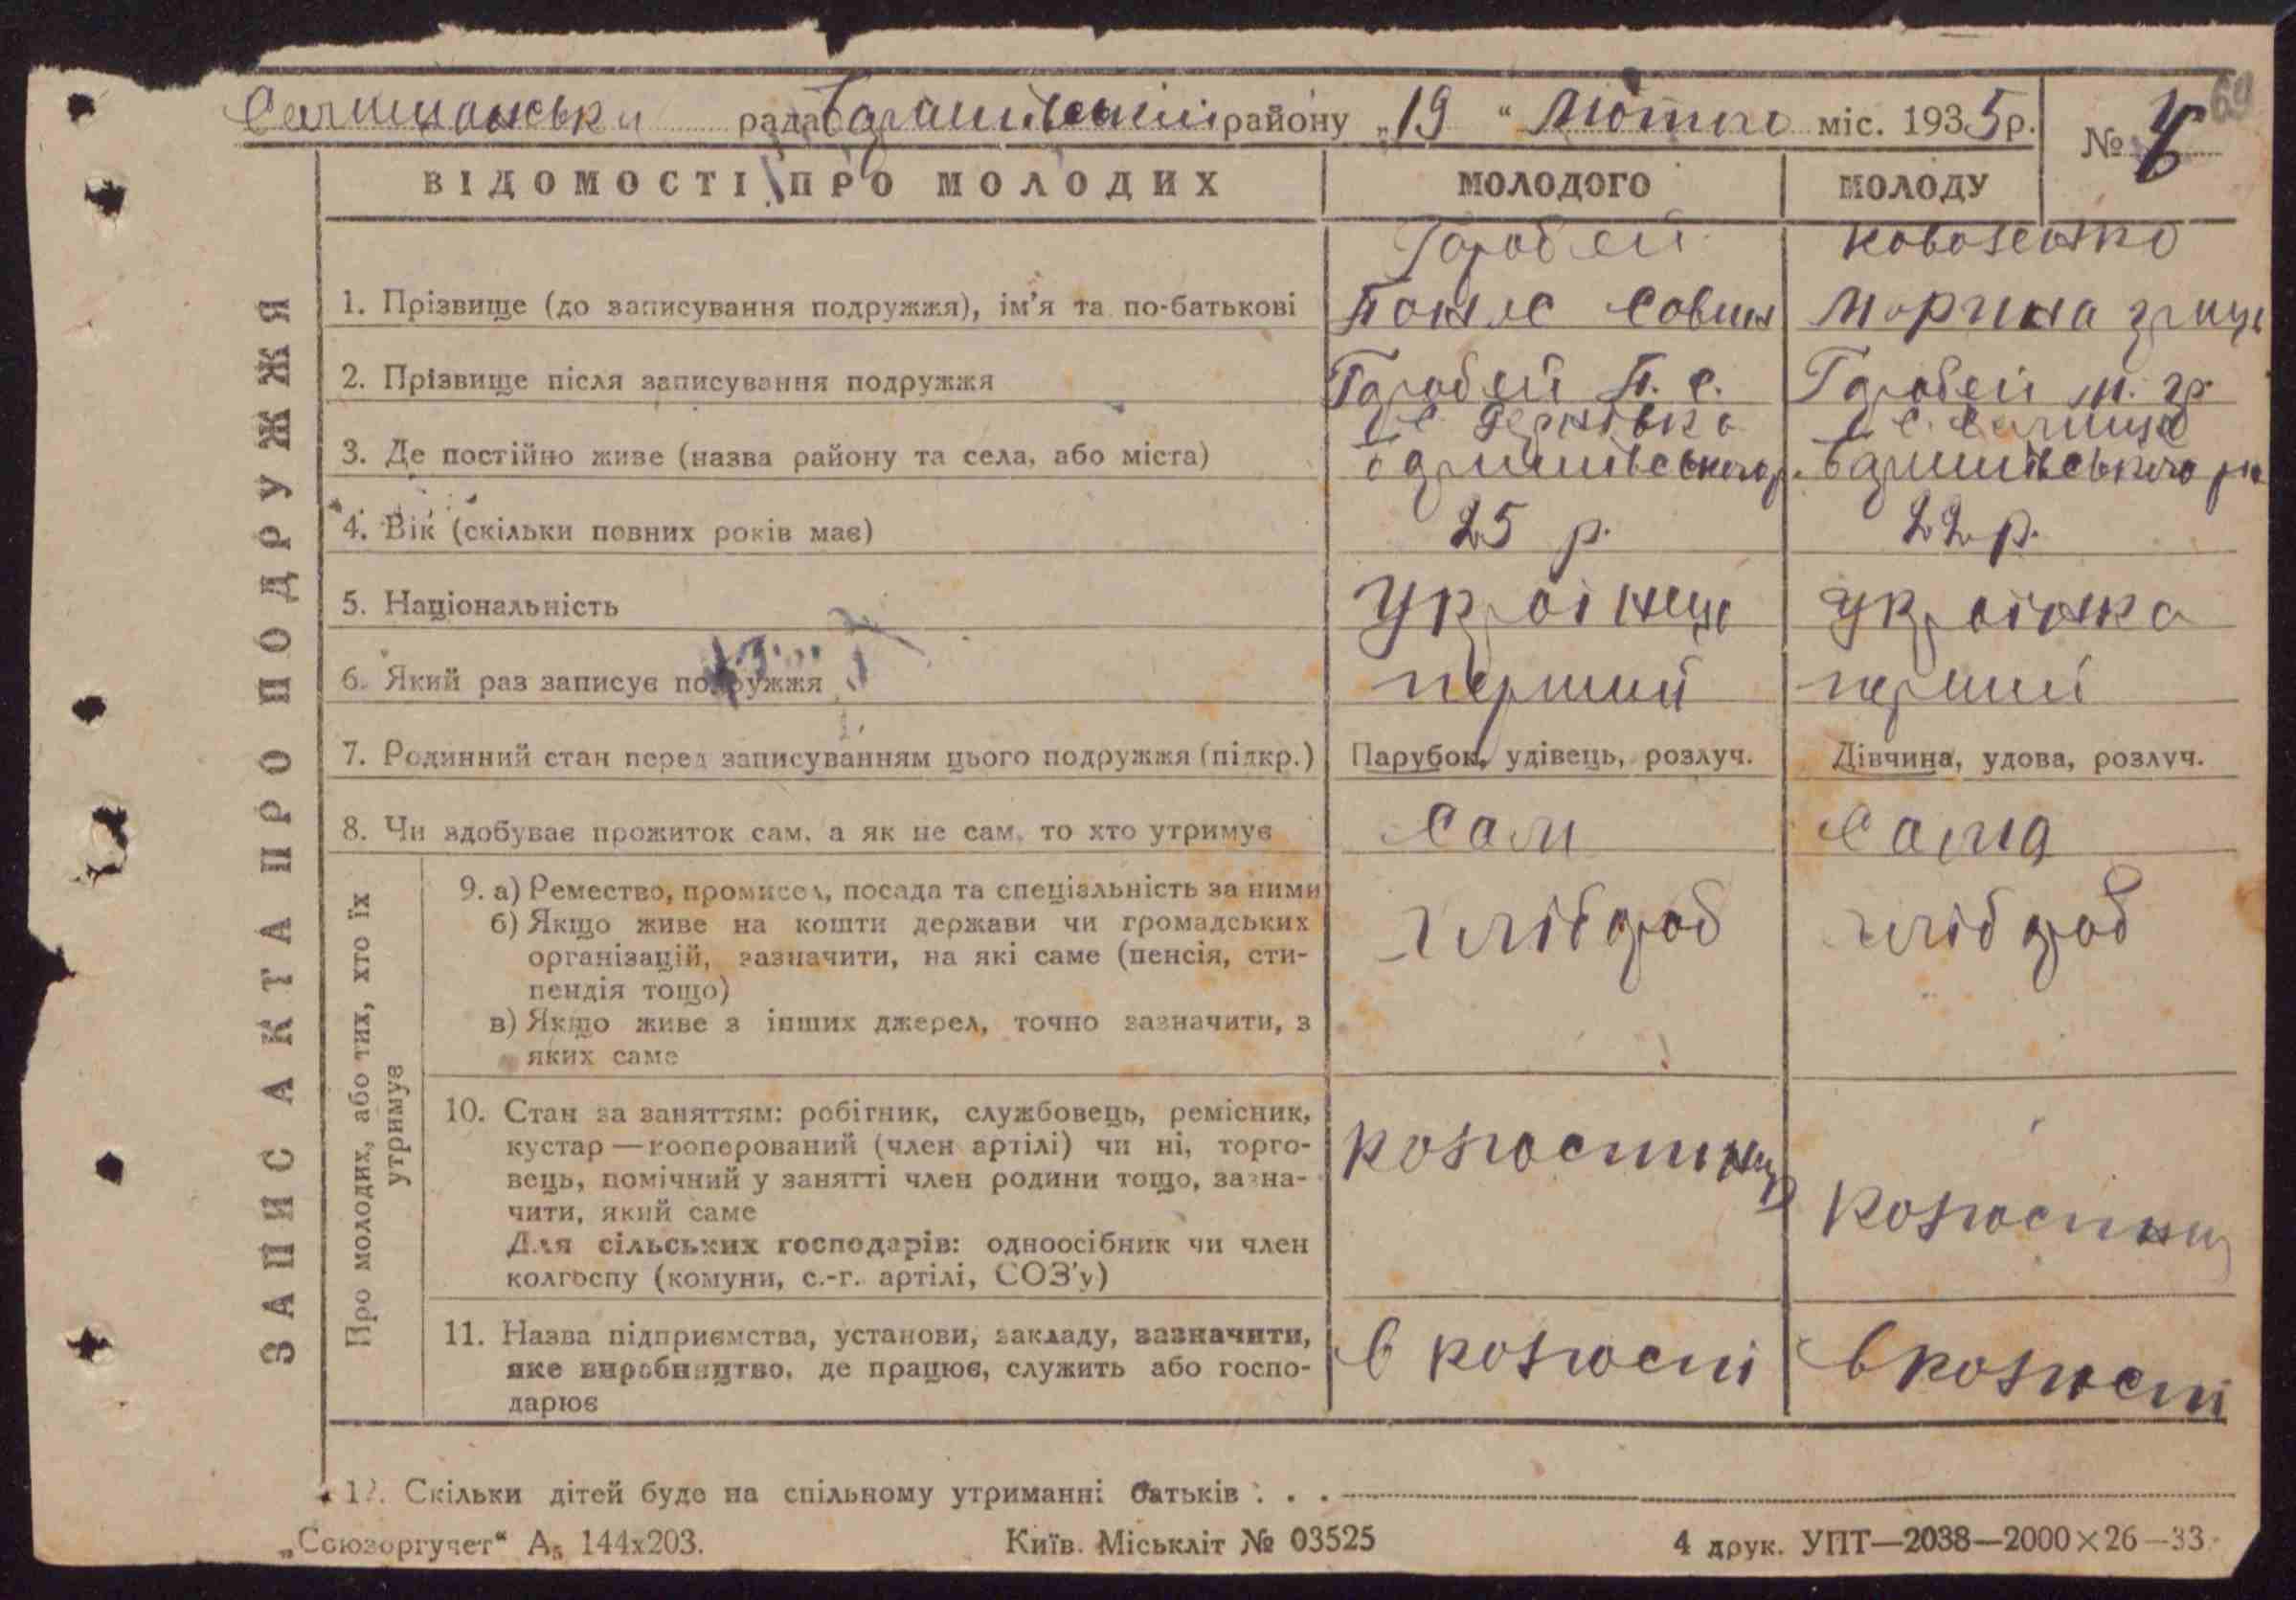 Селищанська рада Баришівський району „19“ Лютого міс. 1935р.
№
69
ВІДОМОСТІ ПРО МОЛОДИХ МОЛОДОГО МОЛОДУ
ЗАПИС АКТА ПРО ПОДРУЖЖЯ
Горобей Коваленко
1. Прізвище (до записування подружжя), ім’я та по-батькові Савин Морина Гриць
2. Прізвище після записування подружжя Горобей П. С. Горобей М. Гр.
с. с. Селище
3. Де постійно живе (назва району та села, або міста) Баришівського р. Баришівського
4. Вік (скільки повних років має) 25 р. 22 р.
5. Національність Українець Українка
6. Який раз записує подружжя перший перший
7. Родинний стан перед записуванням цього подружжя (підкр.) Парубок, удівець, розлуч. Дівчина, удова, розлуч.
8. Чи здобуває прожиток сам, а як не сам, то хто утримує Сам Сама
Про молодих, або тих, хто їх
утримує
9. а) Ремество, промисел, посада та спеціальність за ними
б) Якщо живе на кошти держави чи громадських хлібороб хлібороб
організацій, зазначити, на які саме (пенсія, сти-
пендія тощо)
в) Якщо живе з інших джерел, точно зазначити, з
яких саме
10. Стан за заняттям: робітник, службовець, ремісник,
кустар — кооперований (член артілі) чи ні, торго-
вець, помічний у занятті член родини тощо, зазна-
чити, який саме
Для сільських господарів: одноосібник чи член
колгоспу (комуни, с.-г. артілі, СОЗ’у)
11. Назва підприємства, установи, закладу, зазначити, в колгоспі в колгоспі
яке виробництво, де працює, служить або госпо-
дарює
12. Скільки дітей буде на спільному утриманні батьків . . .
„Союзоргучет“ А5 144х203. Київ. Міськліт № 03525 4 друк. УПТ—2038—2000×26—33.